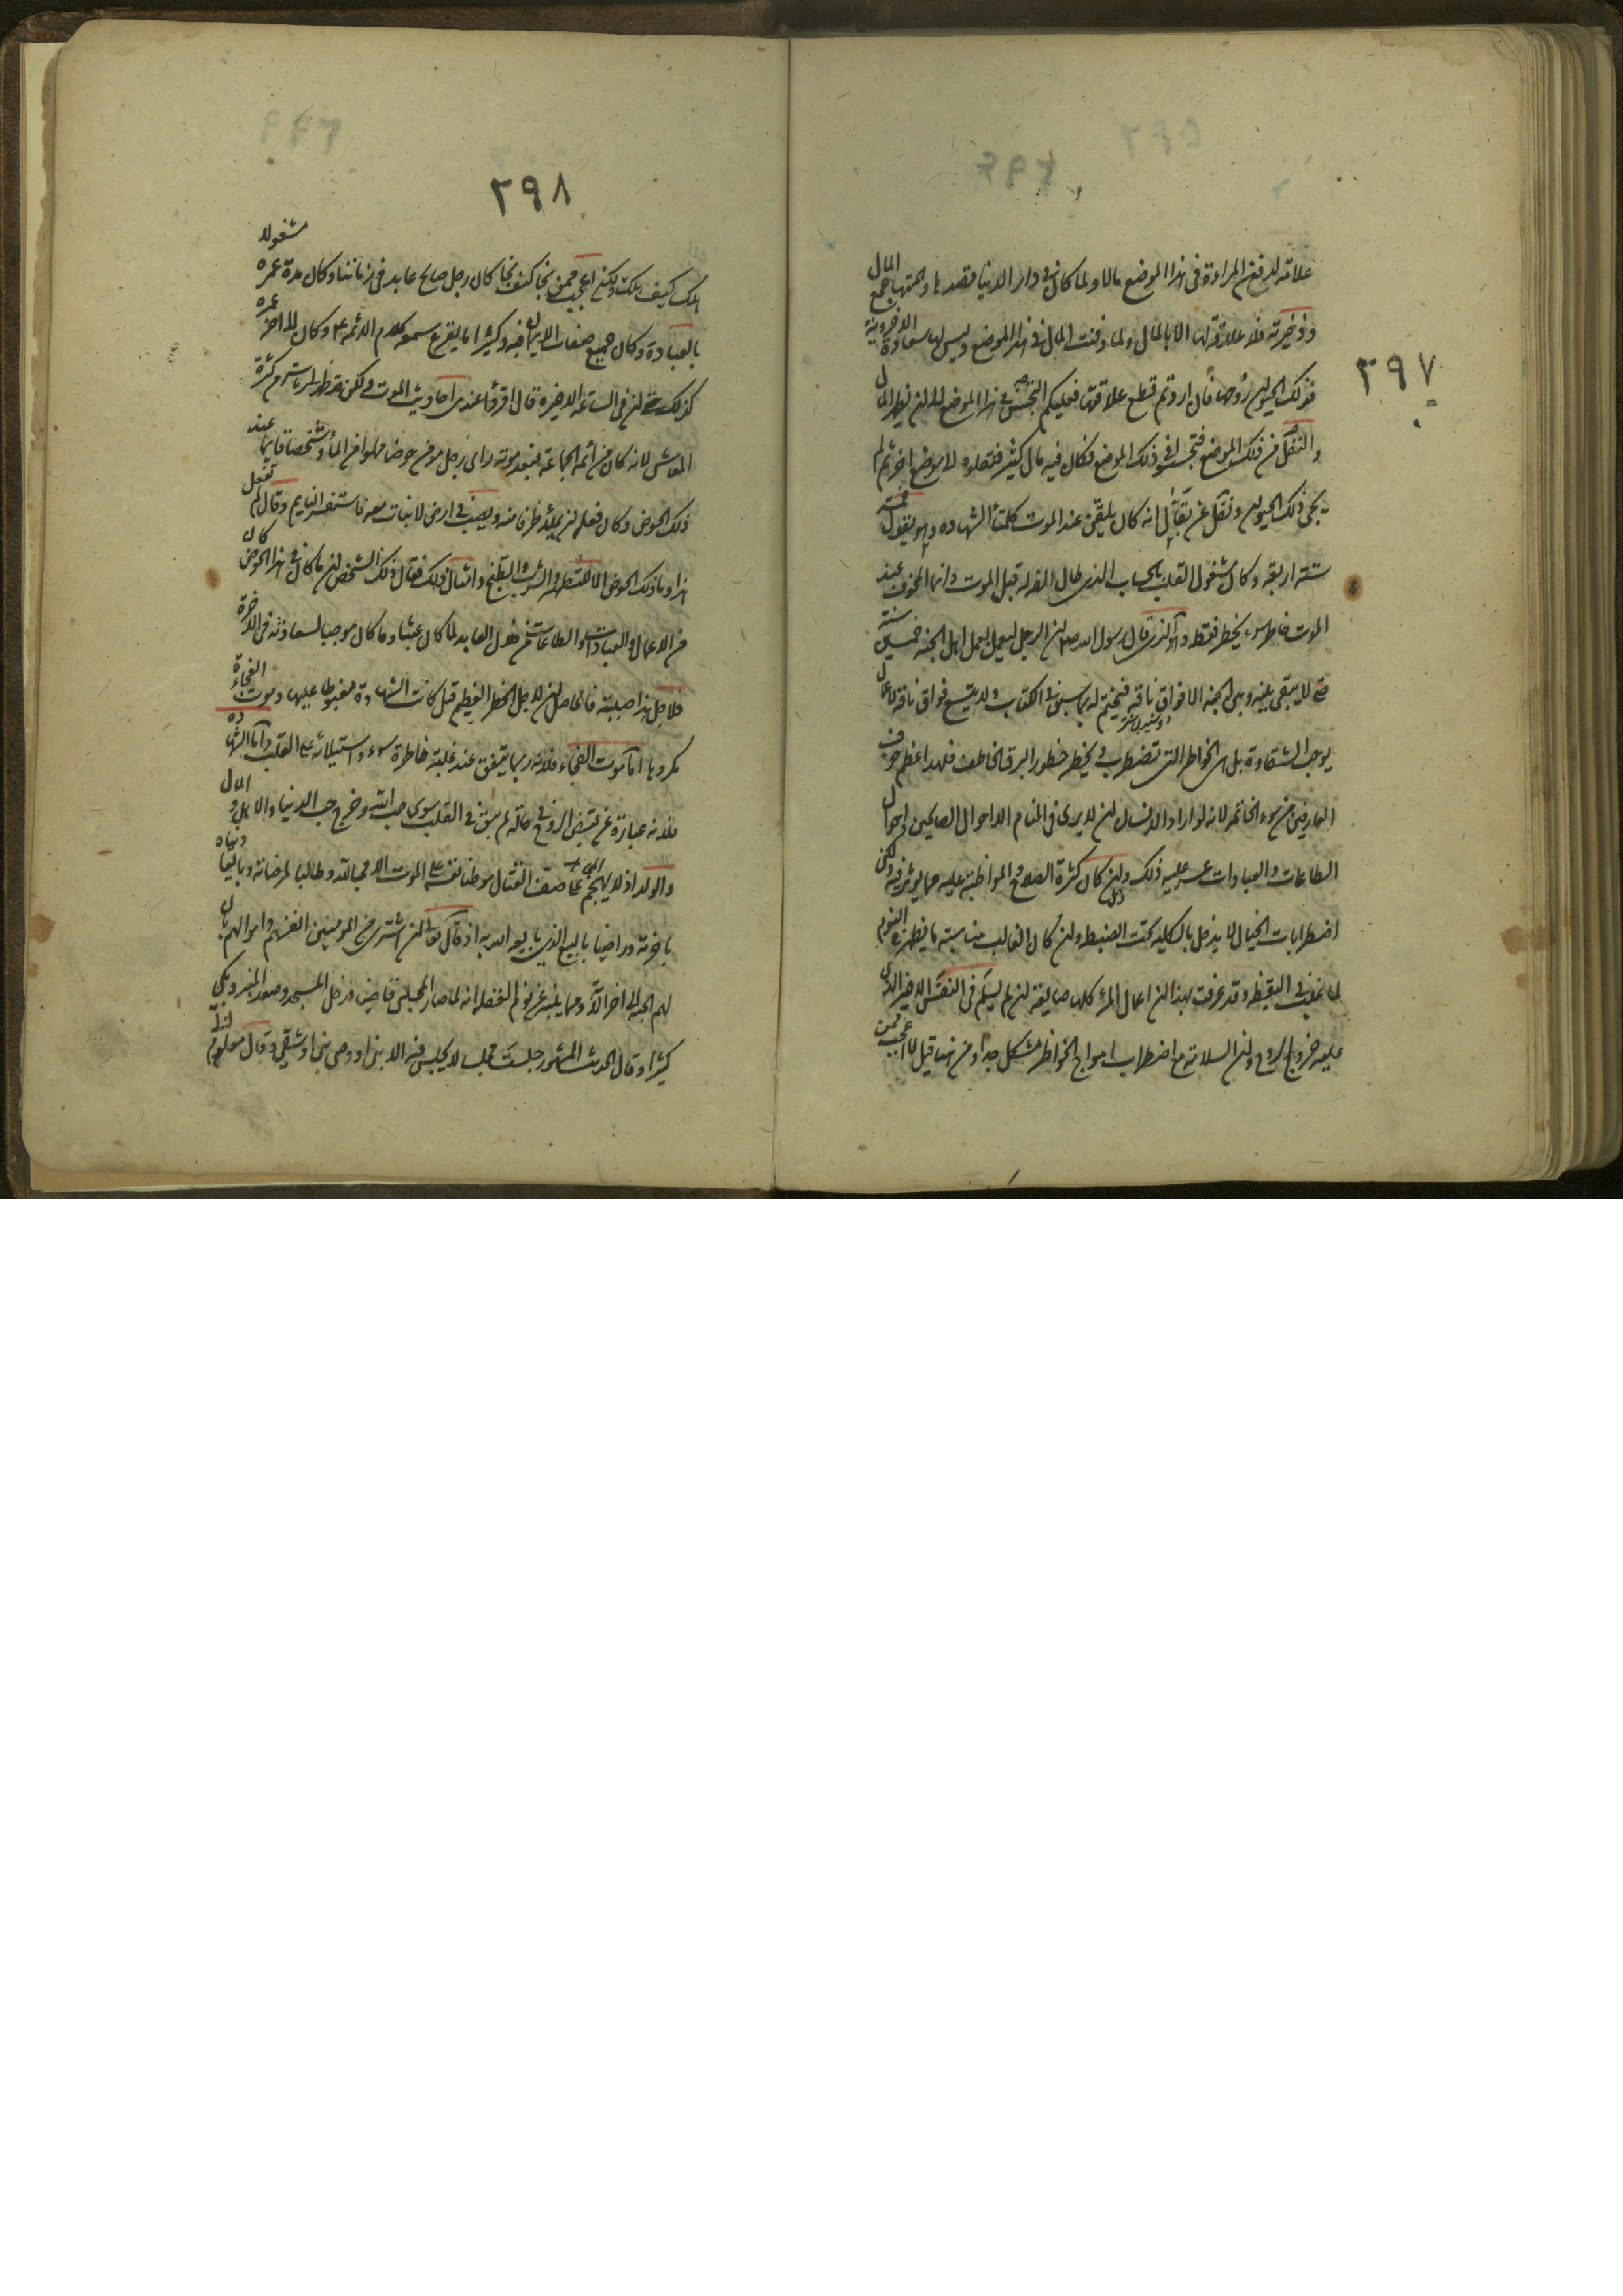 ٣٩٧
علاقه لدفن المراءة فى هذا الموضع مالا ولما كان فى دار الدنيا مقصدها وهمتها جمع المال
وذخيرته فلا علاقة لها الا بالمال ولما دفنت المال فى هذا الموضع وليس لها سعادة الاخروية
فذلك الحيوان روحها فان اردتم قطع علاقتها فعليكم التجسس فى هذا الموضع الى ان يظهر المال
والنقل من ذلك الموضع فتجسسوا فى ذلك الموضع فكان فيه مال كثير فنقلوه الا موضع اخر ثم لم
يجئ ذلك الحيوان ونقل عن بقال انه كان يلقن عند الموت كلمتا الشهاده وهو يقول خمسة
ستة اربعة وكان مشغول القلب بالحساب الذى طال الفه له قبل الموت وانما المخوف عند
الموت خاطر سوء يخطر فقط وهو الذى قال رسول الله ص ان الرجل ليعمل بعمل اهل الجنة خمسين سنة
حتى لا يبقى بينه وبين الجنة الا فواق ناقه فيختم له بما سبق فى الكتاب ولا يتسع فواق ناقة لاعمال
يوجب الشقاوة بل هى الخواطر التى تضطرب و يخطر خطور البرق الخاطف فلهذا عظم خوف
العارفين من سوء الخاتمه لانه لو اراد الانسان ان لا يرى فى المنام الا احوال الصالحين واحوال
الطاعات والعبادات عسر عليه ذلك وان كان كثرة الصلاح والمواظبة عليه مما يؤثر فيه ولكن
اضطرابات الخيال لا يدخل بالكليه تحت الضبط وان كان الغالب مناسبة ما يظهر فى النوم
لما غلب فى اليقظه وقد عرفت بهذا ان اعمال المرء كلها ضايعة ان لم يسلم فى النفس الاخير الذى
عليه خروج الروح وان السلامة مع اضطراب امواج الخواطر مشكل جدا ومن هنا قيل لا اعجب ممن
٣٩٨
هلك كيف هلك ولكنى اعجب ممن نجا كيف نجا كان رجل صالح عابد فى زماننا وكان مدة عمره مشغولا
بالعبادة وكان جميع صفات الايمان فيه وكثيرا ما يقرع سمعه كلام الائمه ع وكان الى اخر عمره
كذلك حتى ان فى الساعة الاخيرة قال اقرؤا عندى احاديث الموت ولكن
المعاش لانه كان من ائمة الجماعة فبعد موته راى رجل مؤمن حوضا مملوا من الماء وشخصا قايما عند
ذلك الحوض وكان فعله ان يملأ ظرفا منه ويصب فى ارض لا نبات معه فاستفسر النايم وقال لم تفعل
هذا وماء ذلك الحوض والشرب والطبخ وامثال ذلك فقال ذلك الشخص ان ما كان فى هذا الحوض كان
من الاعمال والعبادات والطاعات من هذا العابد لما كان عبثا وما كان موجبا لسعادته فى الاخرة
فلاجل هذا صببته فالحاصل ان لاجل الخطر العظيم قيل كانت الشهادة مغبوطا عليها وموت الفجأة
مكروها اما موت الفجاء فلانه ربما يتفق عند غلبة خاطرة سوء واستيلائه على القلب واما الشهادة
فلانه عبارة عن قبض الروح فى حالة لم يبق فى القلب سوى حب الله وخرج حب الدنيا والاهل والمال
والولد اذ لا يهجم على صف القتال موطنا نفسه على الموت الا محبا لله وطالبا لمرضاته وبايعا دنياه
باخرته وراضيا بالبيع الذى بايعه الله به اذ قال تعالى ان الله اشترى من المومنين انفسهم واموالهم بان
لهم الجنة الى اخر الآية ومما ينبه عن فضله انه لما صار المجلسى قاضيا دخل المسجد وصعد المنبر وبكى
كثيرا وقال الحديث المشهور جلست مجلسا لا يجلس فيه الا نبى او وصى نبى او شقى وقال معلوم